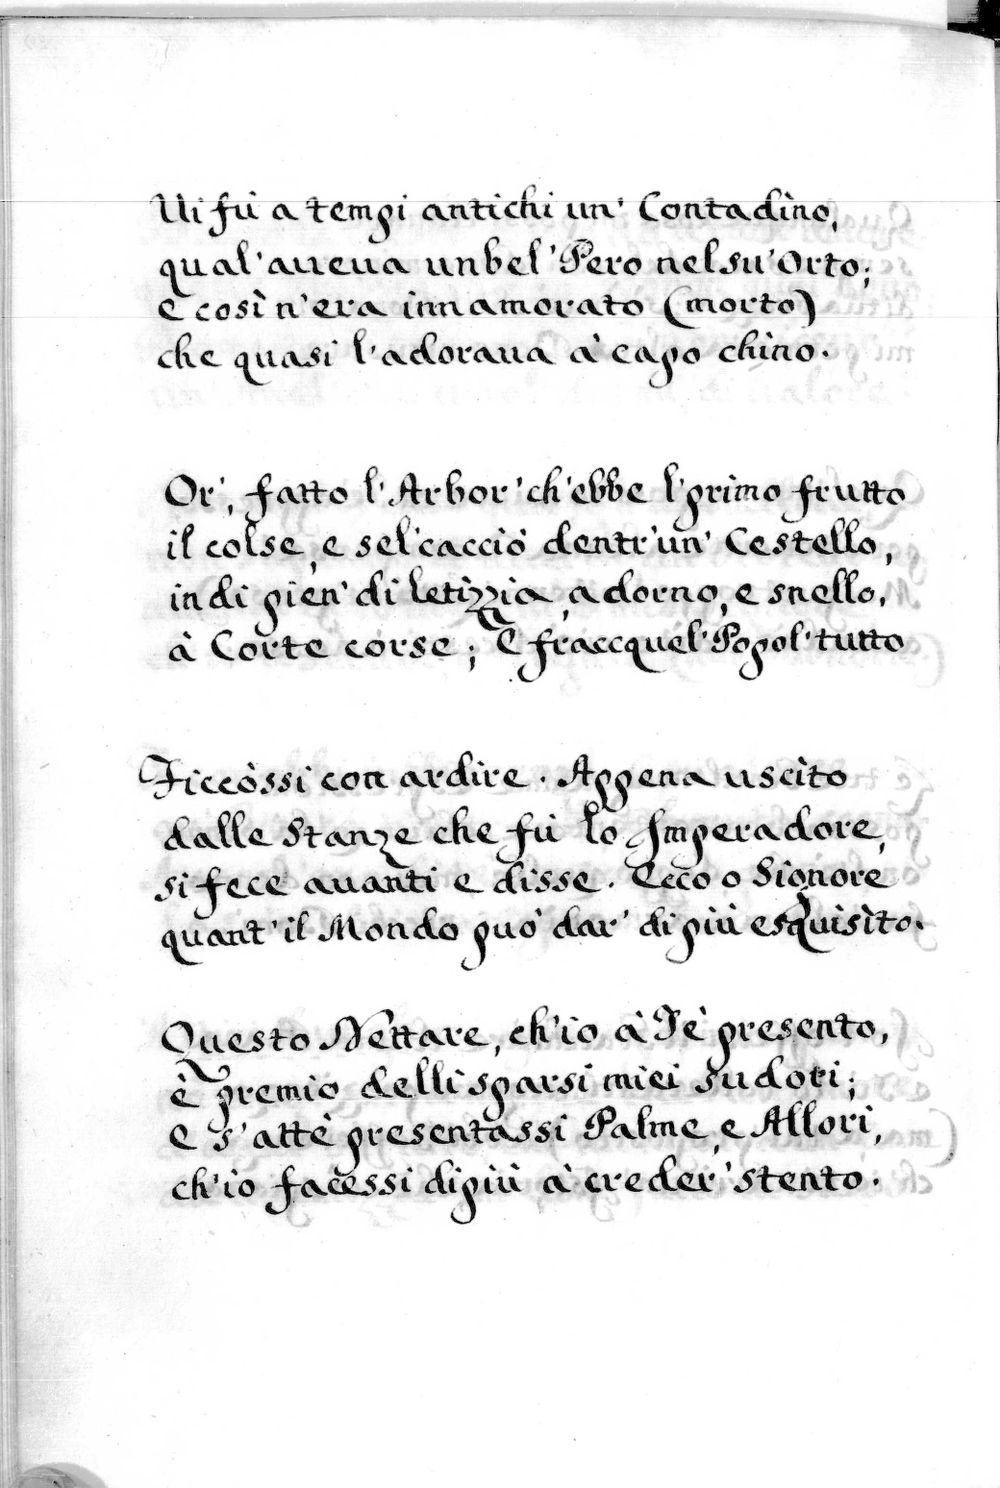 Ui fù a tempi antichi un' Contadino,
qual' aueua un bel' Pero nel su' Orto;
e così n'era innamorato (morto)
che quasi l'adoraua à capo chino.
Or', fatto l'Arbor' ch'ebbe l' primo frutto
il colse, e sel' cacciò dentr' un' Cestello,
indi pien' di letizzia, adorno, e snello,
à Corte corse; E fraccquel' Popol' tutto
Ficcòssi con ardire. Appena uscito
dalle Stanze che fù lo Imperadore,
si fece auanti e disse. Ecco o Signore
quant' il Mondo può dar' di più esquisito.
Questo Nettare, ch'io à Tè presento,
è premio delli sparsi miei sudori;
e s'attè presentassi Palme, e Allori,
ch'io facessi di più à creder' stento.